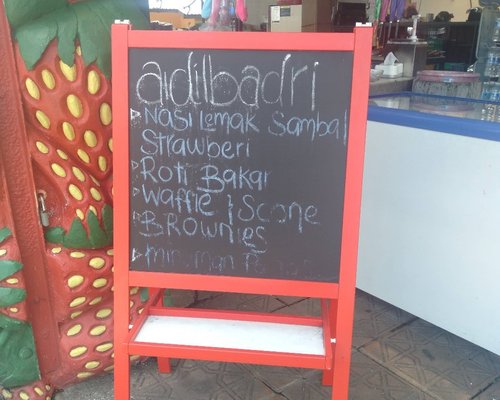 adilbadri
Nasi Lemak Sambal
Strawberi
Roti Bakar
Waffle & Scone
Brownies
Minuman